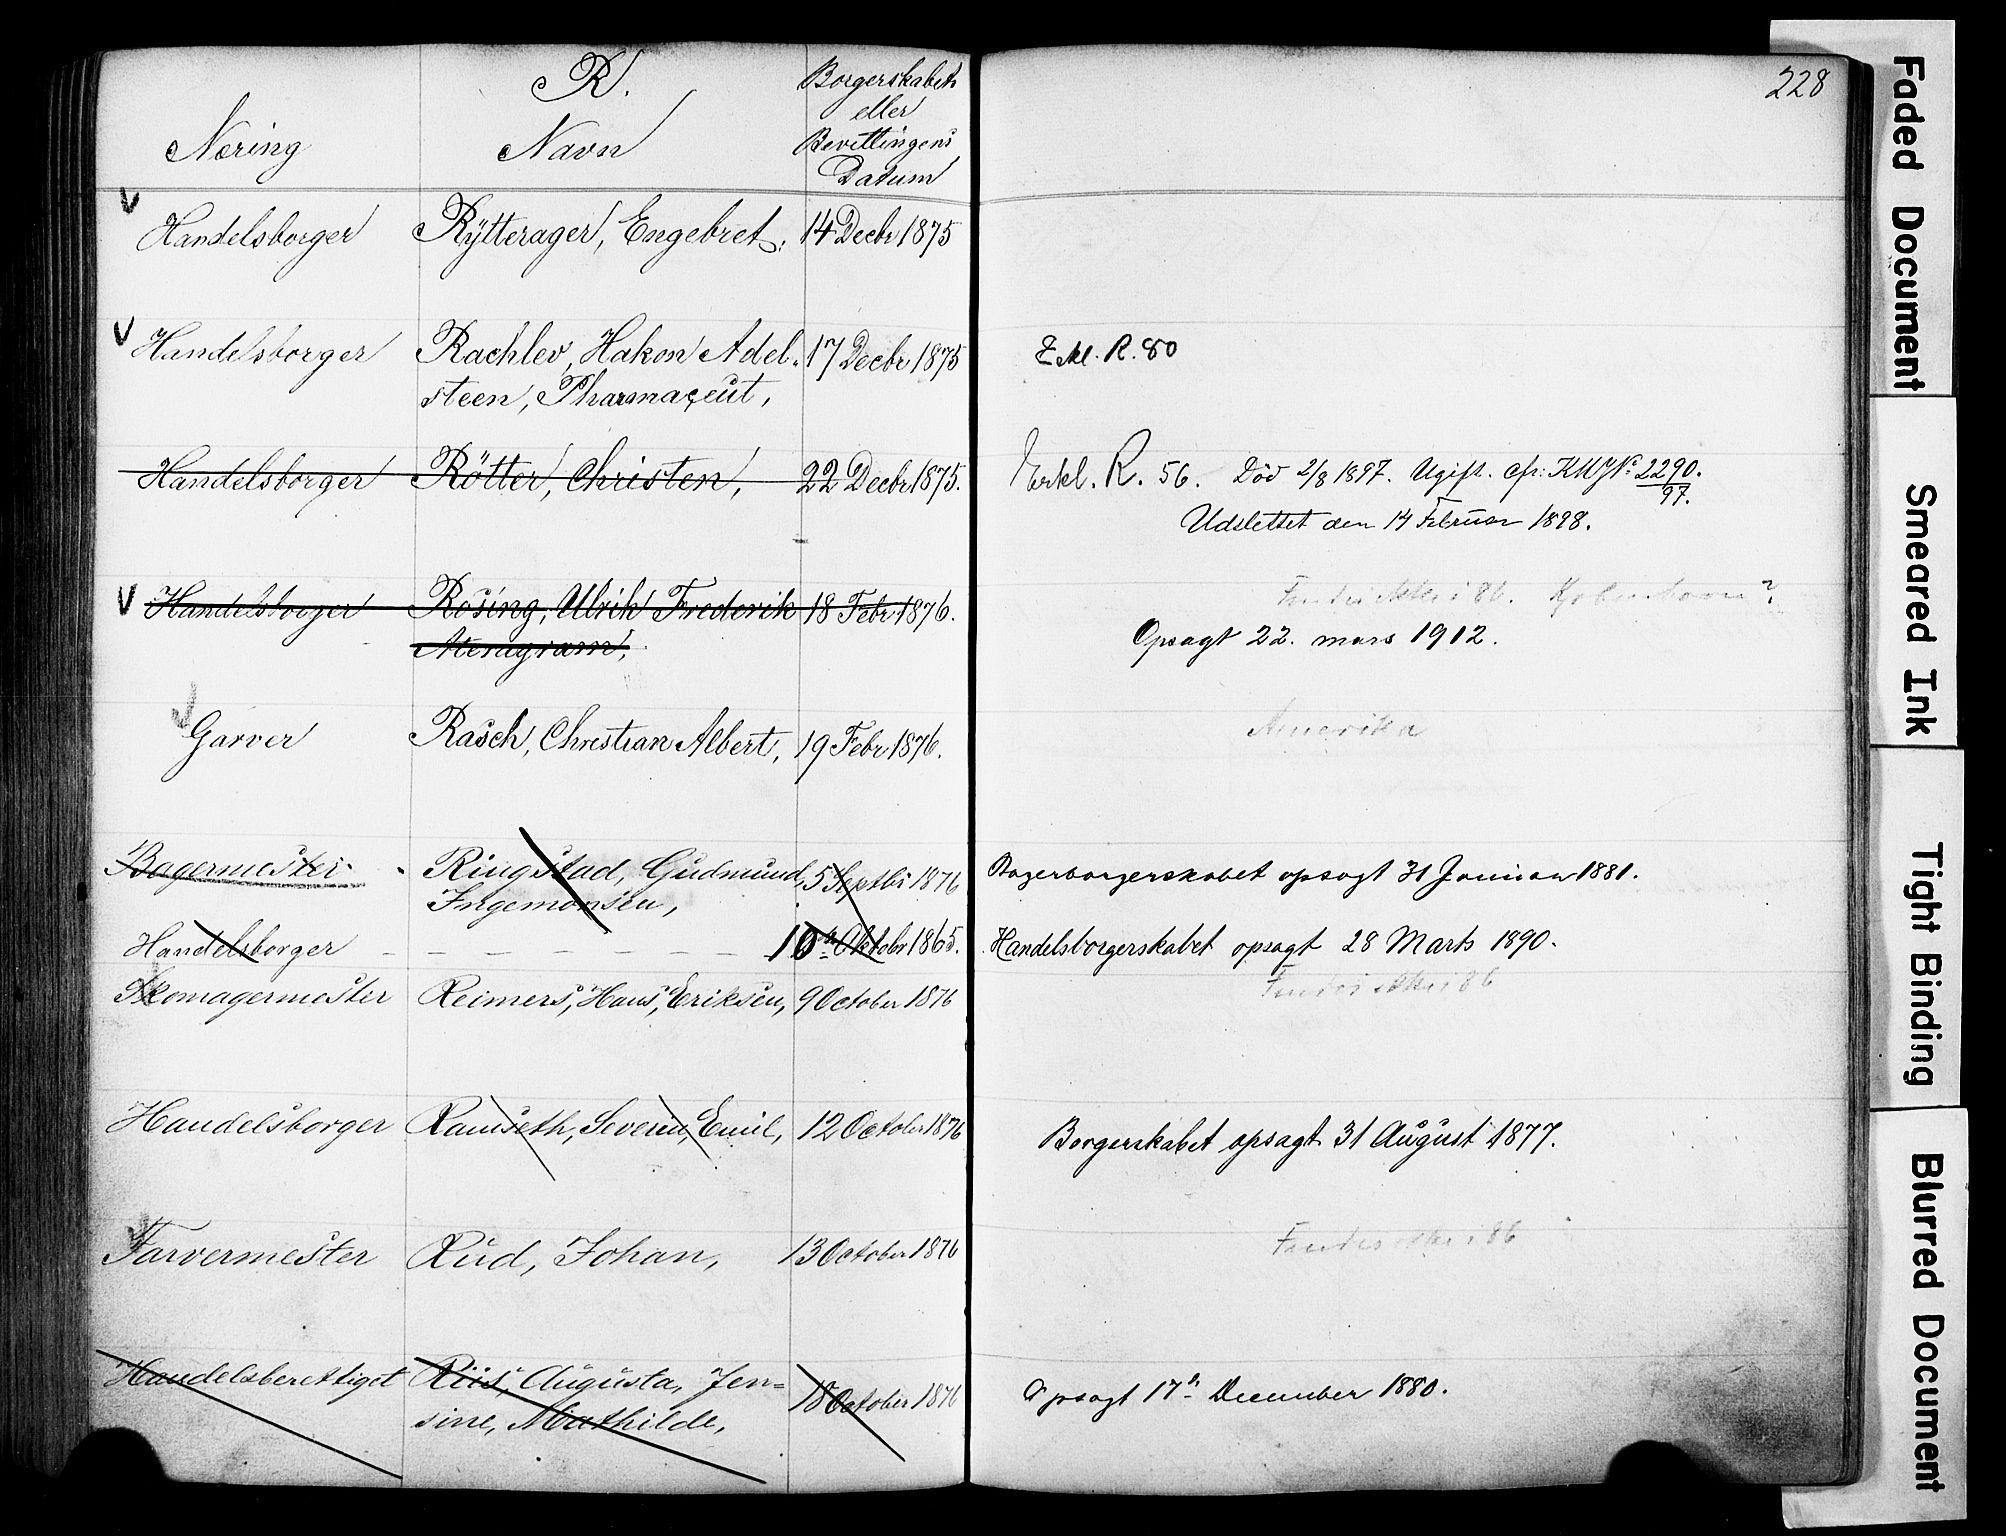 R.
Næring
Navn
Borgerskabets
eller
Bevillingens
Datum
228
Handelsborger Rÿtterager, Engebret, 14 Decbr 1875
Handelsborger Rachlev, Hakon Adel- 17 Decbr 1875
steen, Pharmaceut,
R. 80
Handelsborger Rötter, Christen, 22 Decbr 1875.
Erkl. R. 56. Död 2/8 1897. Ugift. cfr. 2290.
97.
Udslettet den 14 Februar 1898.
Handelsborger Rosing, Ulrik Frederik 18 Febr 1876.
Opsagt 22. mars 1912.
Garver Rasch, Christian Albert, 19 Febr 1876.
Amerika
Bagermester Ringstad, Gudmund 5 Septbr 1876
Ingemonsen,
Bagerborgerskabet opsagt 31 Januar 1881.
Handelsborger - - - - - - - 10de Oktobr 1865.
Handelsborgerskabet opsagt 28 Marts 1890.
Skomagermester Reimers, Hans, Eriksen, 9 October 1876
86
Handelsborger Ramseth, Severin, Emil, 12 October 1876
Borgerskabet opsagt 31 August 1877.
Farvermester Rud, Johan, 13 October 1876
86
Handelsberettiget Riis, Augusta, Jen=
sine, Mathilde, 18 October 1876
Opsagt 17de December 1880.
Faded Document
Smeared Ink
Tight Binding
Blurred Document